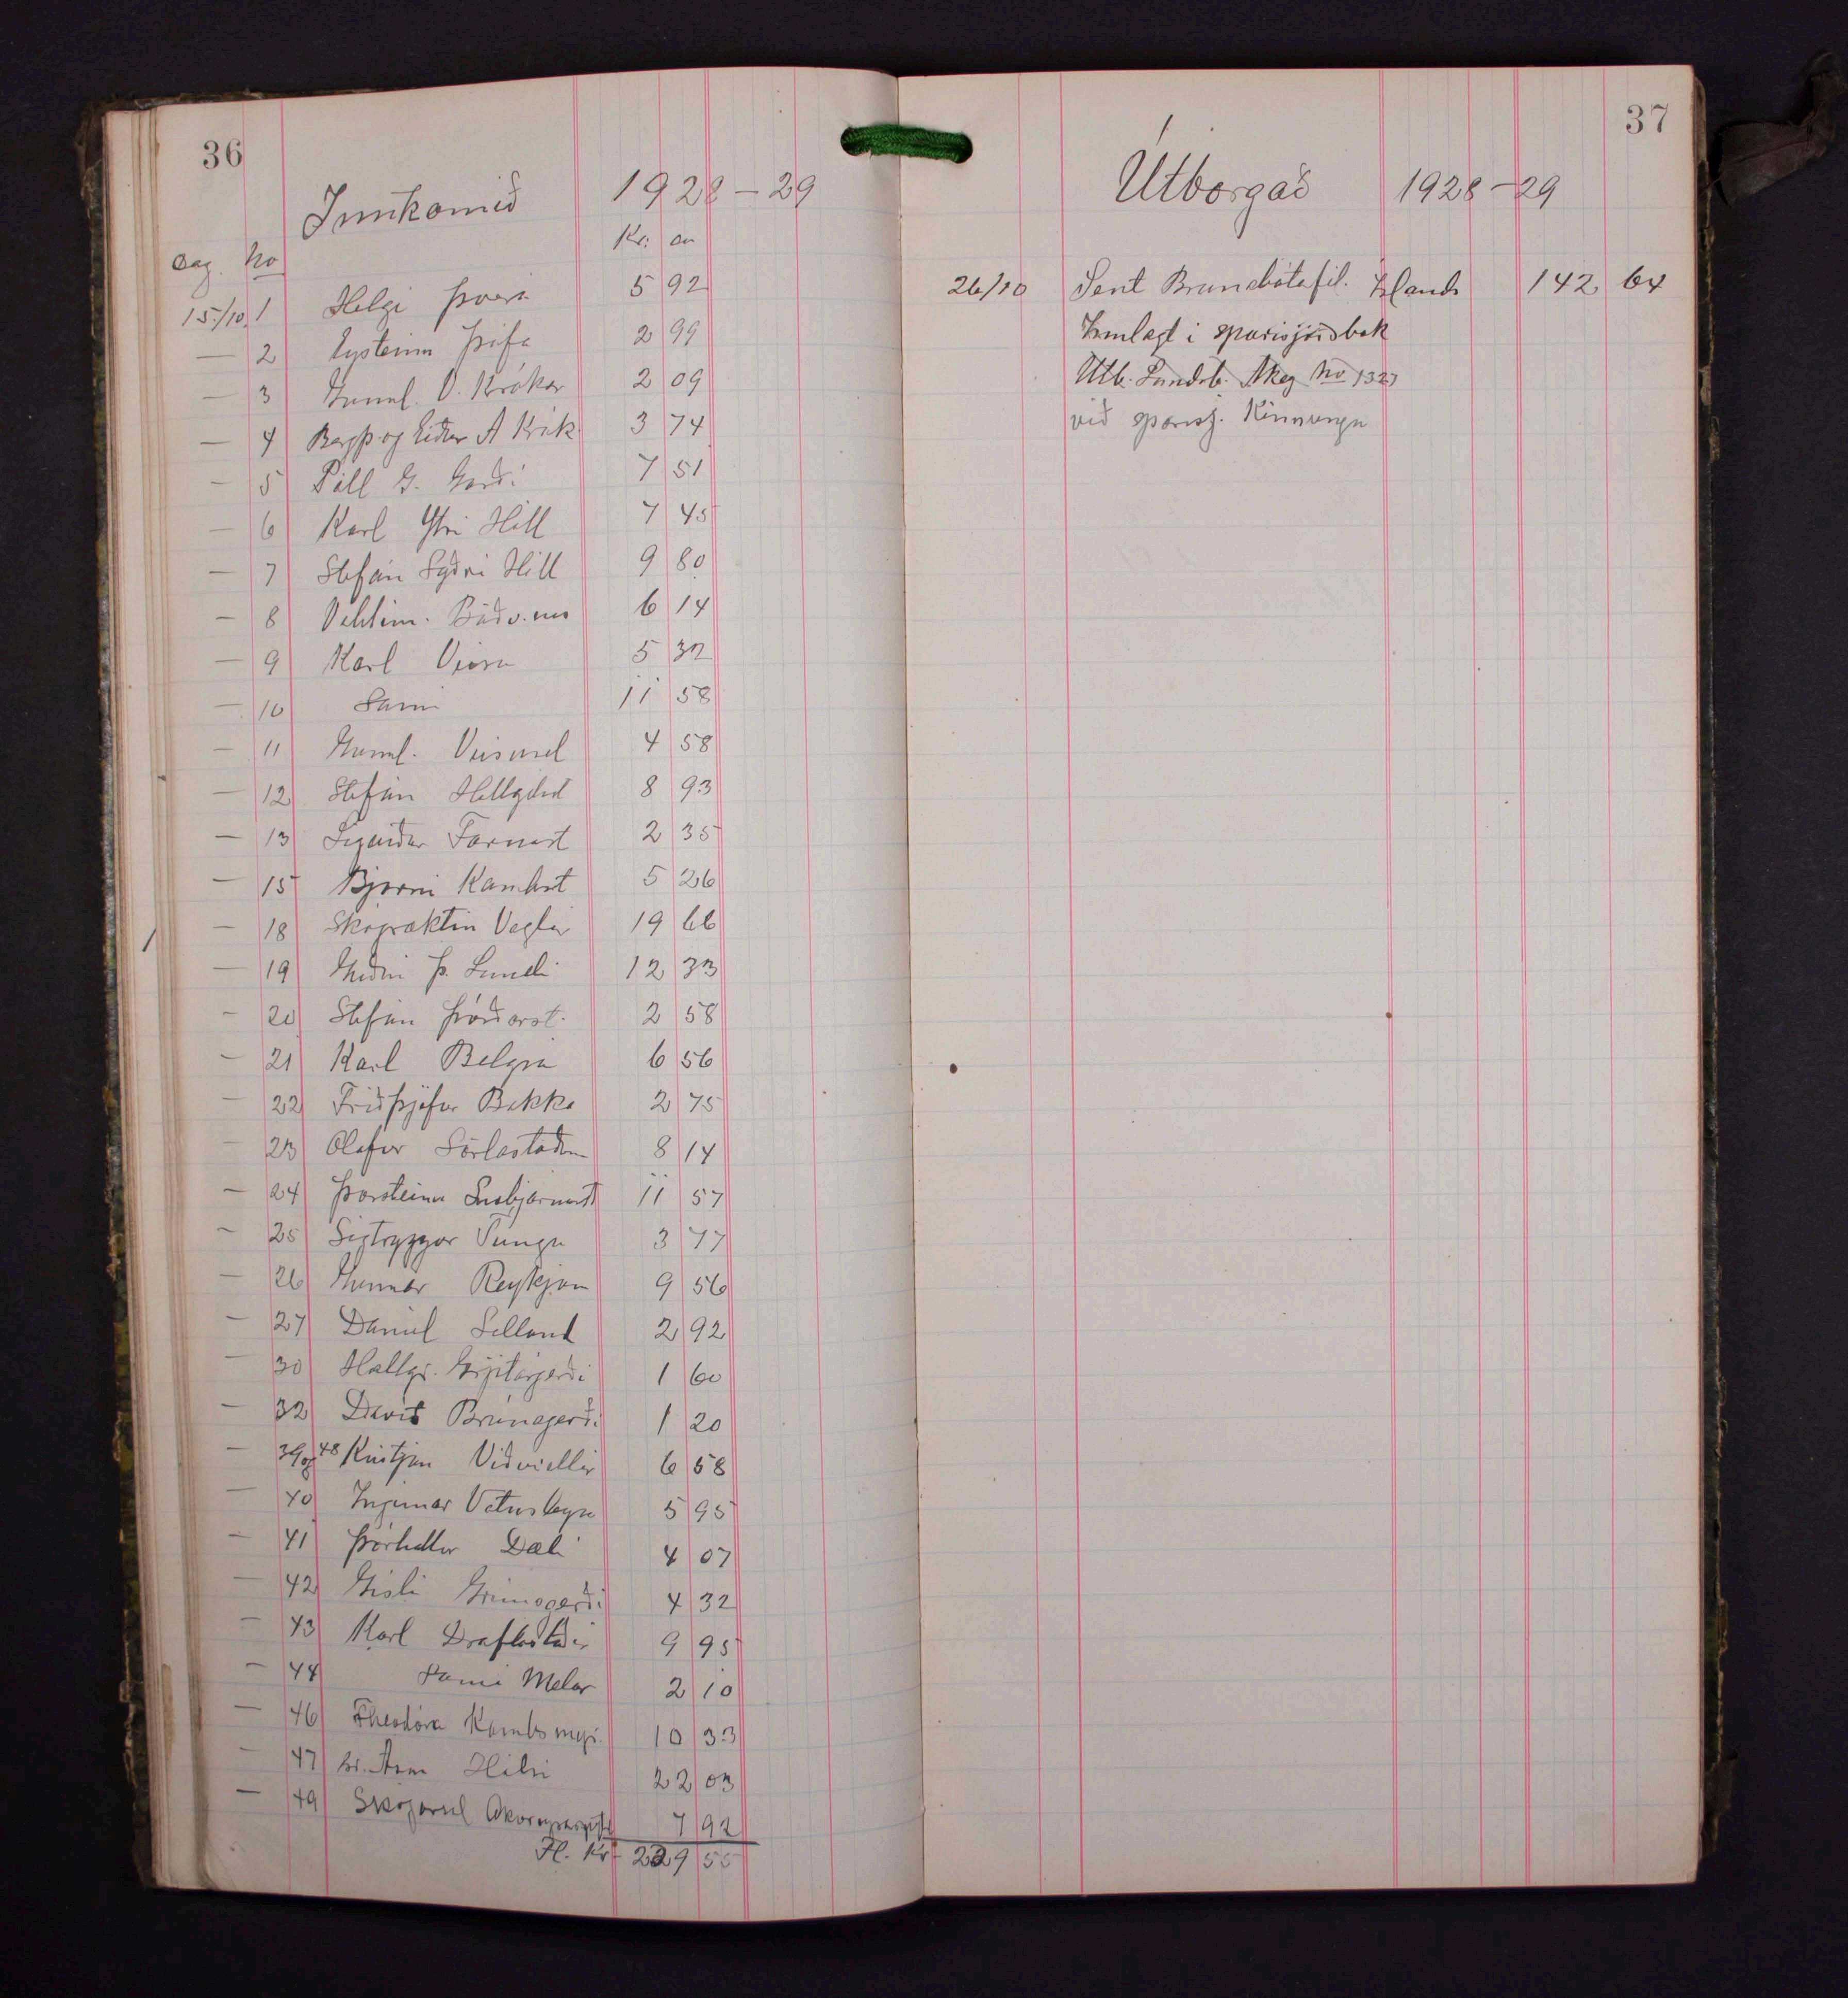 36
Innkomið 1928-29
Dag. No Kr. au
15/10 1 Helgi Þverá 5 92
— 2 Eysteinn Þúfa 2 99
— 3 Gunnl. O. Krókar 2 09
— 4 Bergþ og Eiður A Krók 3 74
— 5 Páll G. Garði 7 51
— 6 Karl Ytri Hóll 7 45
— 7 Stefán Syðri Hóll 9 80
— 8 Böðv.nes 6 14
— 9 Karl Veisa 5 32
— 10 Sami 11 58
— 11 Gunnl. Veisusel 4 58
— 12 Stefán Hallgilsst 8 93
— 13 Sigurður Farnest 2 35
— 15 Bjarni Kambst 5 26
— 18 Skógræktin Vaglir 19 66
— 19 Guðni Þ. Lundi 12 33
— 20 Stefán Þórðarst. 2 58
— 21 Karl Belgsá 6 56
— 22 Friðþjófur Bakka 2 75
— 23 Olafur Sörlastaðir 8 14
— 24 Þorsteinn Snæbjarnarst 11 57
— 25 Sigtryggur Tungu 3 77
— 26 Gunnar Reykjum 9 56
— 27 Daniel Selland 2 92
— 30 Hallgr. Grjótárgerði 1 60
— 32 Davíð Brúnagerði 1 20
— 39 og 48 Kristján Víðivellir 6 58
— 40 Ingimar Vatnsleysu 5 95
— 41 Þórhallur Dæli 4 07
— 42 Gísli Grímsgerði 4 32
— 43 Karl Draflastaðir 9 95
— 44 Sami Melar 2 10
— 46 Theodóra Kambsmýr. 10 33
— 47 sr. Ásm Hálsi 22 03
— 49 Skógarsel 7 92
Fl. Kr 229 55
37
Útborgað 1928-29
26/10 Sent Brunabótafél. Íslands 142 64
Innlagt í sparisjóðsbók
Útb. Landsb. Akey No 1327
við sparisj. Kinnunga